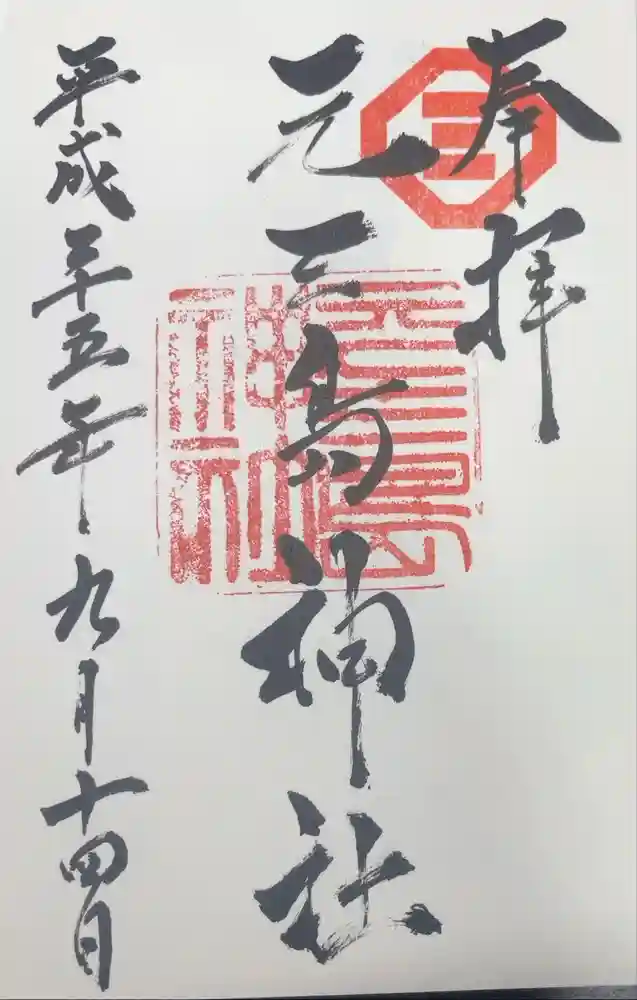 奉拝
元三島神社
平成二十五年九月十四日